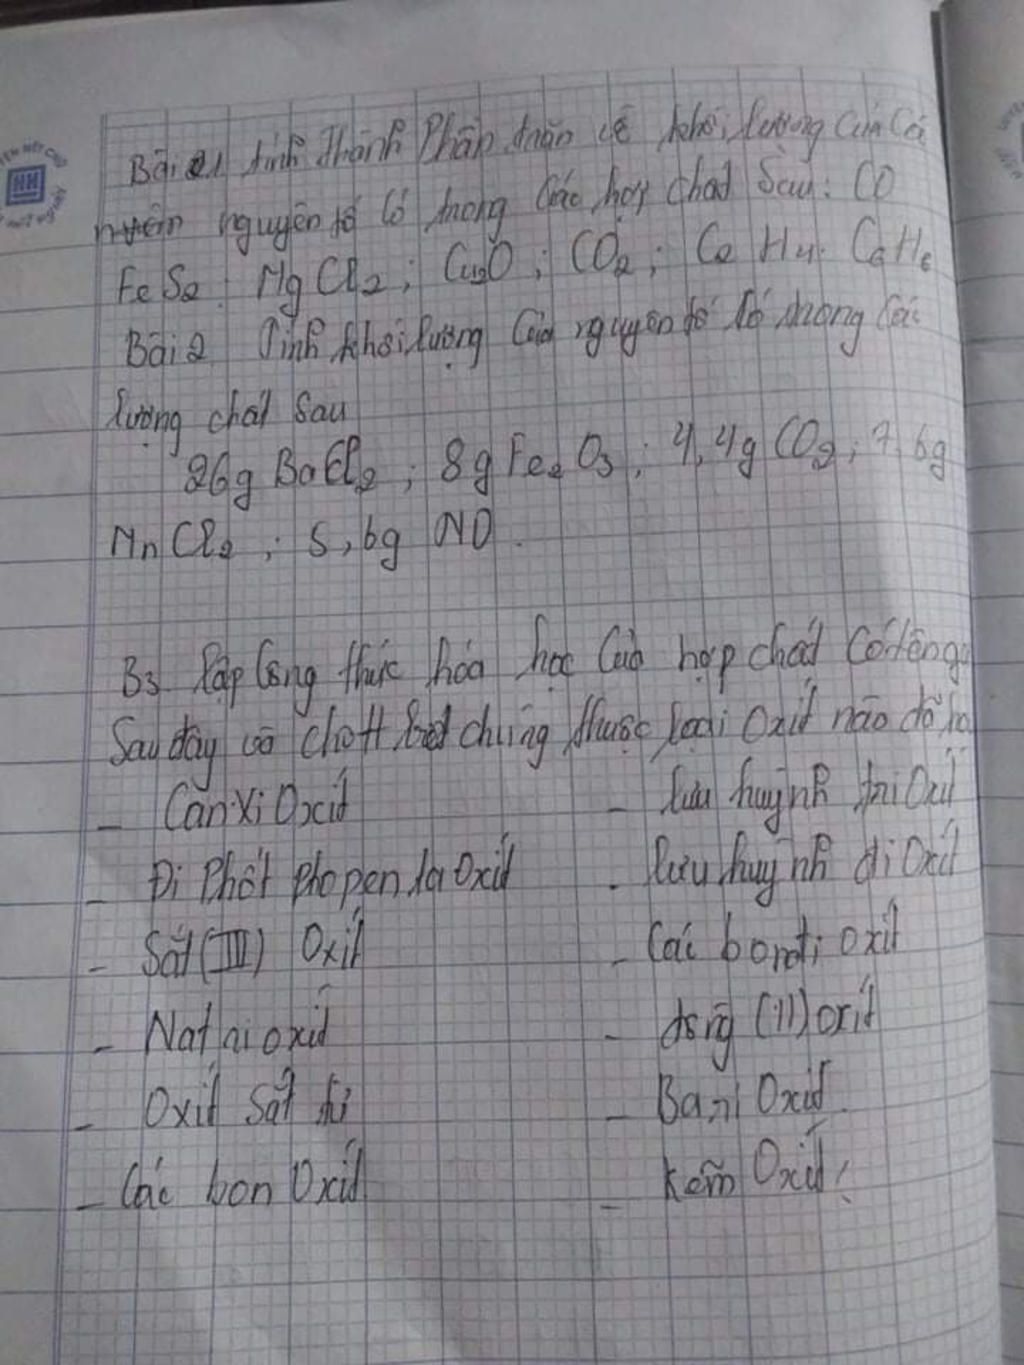 Bài 1 tính thành Phần trăm về khối lượng của Các
nguyên tố có trong các hợp chất Sau: CO
FeS2; MgCl2; Cu2O; CO2; C2H4; C6H6
Bài 2 Tính khối lượng của nguyên tố có trong các
lượng chất sau
26g BaCl2; 8g Fe2O3; 4,4g CO2; 7,6g
MnCl2; 5,6g NO.
B3 lập công thức hóa học của hợp chất có tên gọi
Sau đây và cho biết chúng thuộc loại Oxit nào đã
- Can xi Oxit
- lưu huỳnh tri Oxit
- Đi Phốt pho pen ta Oxit
- lưu huỳnh đi Oxit
- Sắt (III) Oxit
- Các bon đi oxit
- Nat ri oxit
- đồng (II) oxit
- Oxit Sắt từ
- Ba ri Oxit.
- Các bon Oxit
- Kẽm Oxit